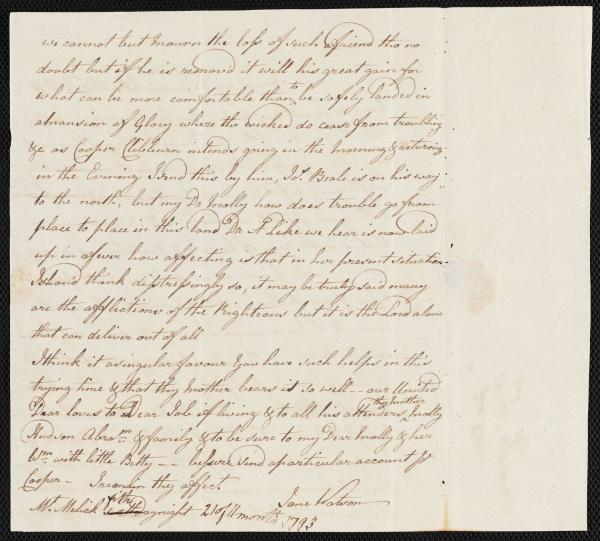 we cannot but Mourn the loss of such a friend tho no
doubt but if he is removed it will his great gain for
what can be more comfortable than to be safely landed in
a mansion of Glory where the wicked do cease from troubling
&c as Cooper Clibburn intends going in the Morning & returning
in the Evening I send this by him, Jos. Beale is on his way
to the north, but my Dr Molly how does trouble go from
place to place in this land Dr A Like we hear is now laid
up in a fever how affecting is that in her present situation
I shou'd think distressingly so, it may be truly said many
are the afflictions of the Righteous but it is the Lord alone
that can deliver out of all
I think it a singular favour you have such helps in this
trying time & that thy Mother bears it so well -- our United
Dear loves to Dear Job if living & to all his attenders, thy Mother Molly
Hudson Abram & family & to be sure to my Dear Molly & her
Wm with little Betty -- be sure send a particular account pr
Cooper - I remain thy affect.
Jane Watson
Mt. Melick fifth day night 21 of 11 month 1793